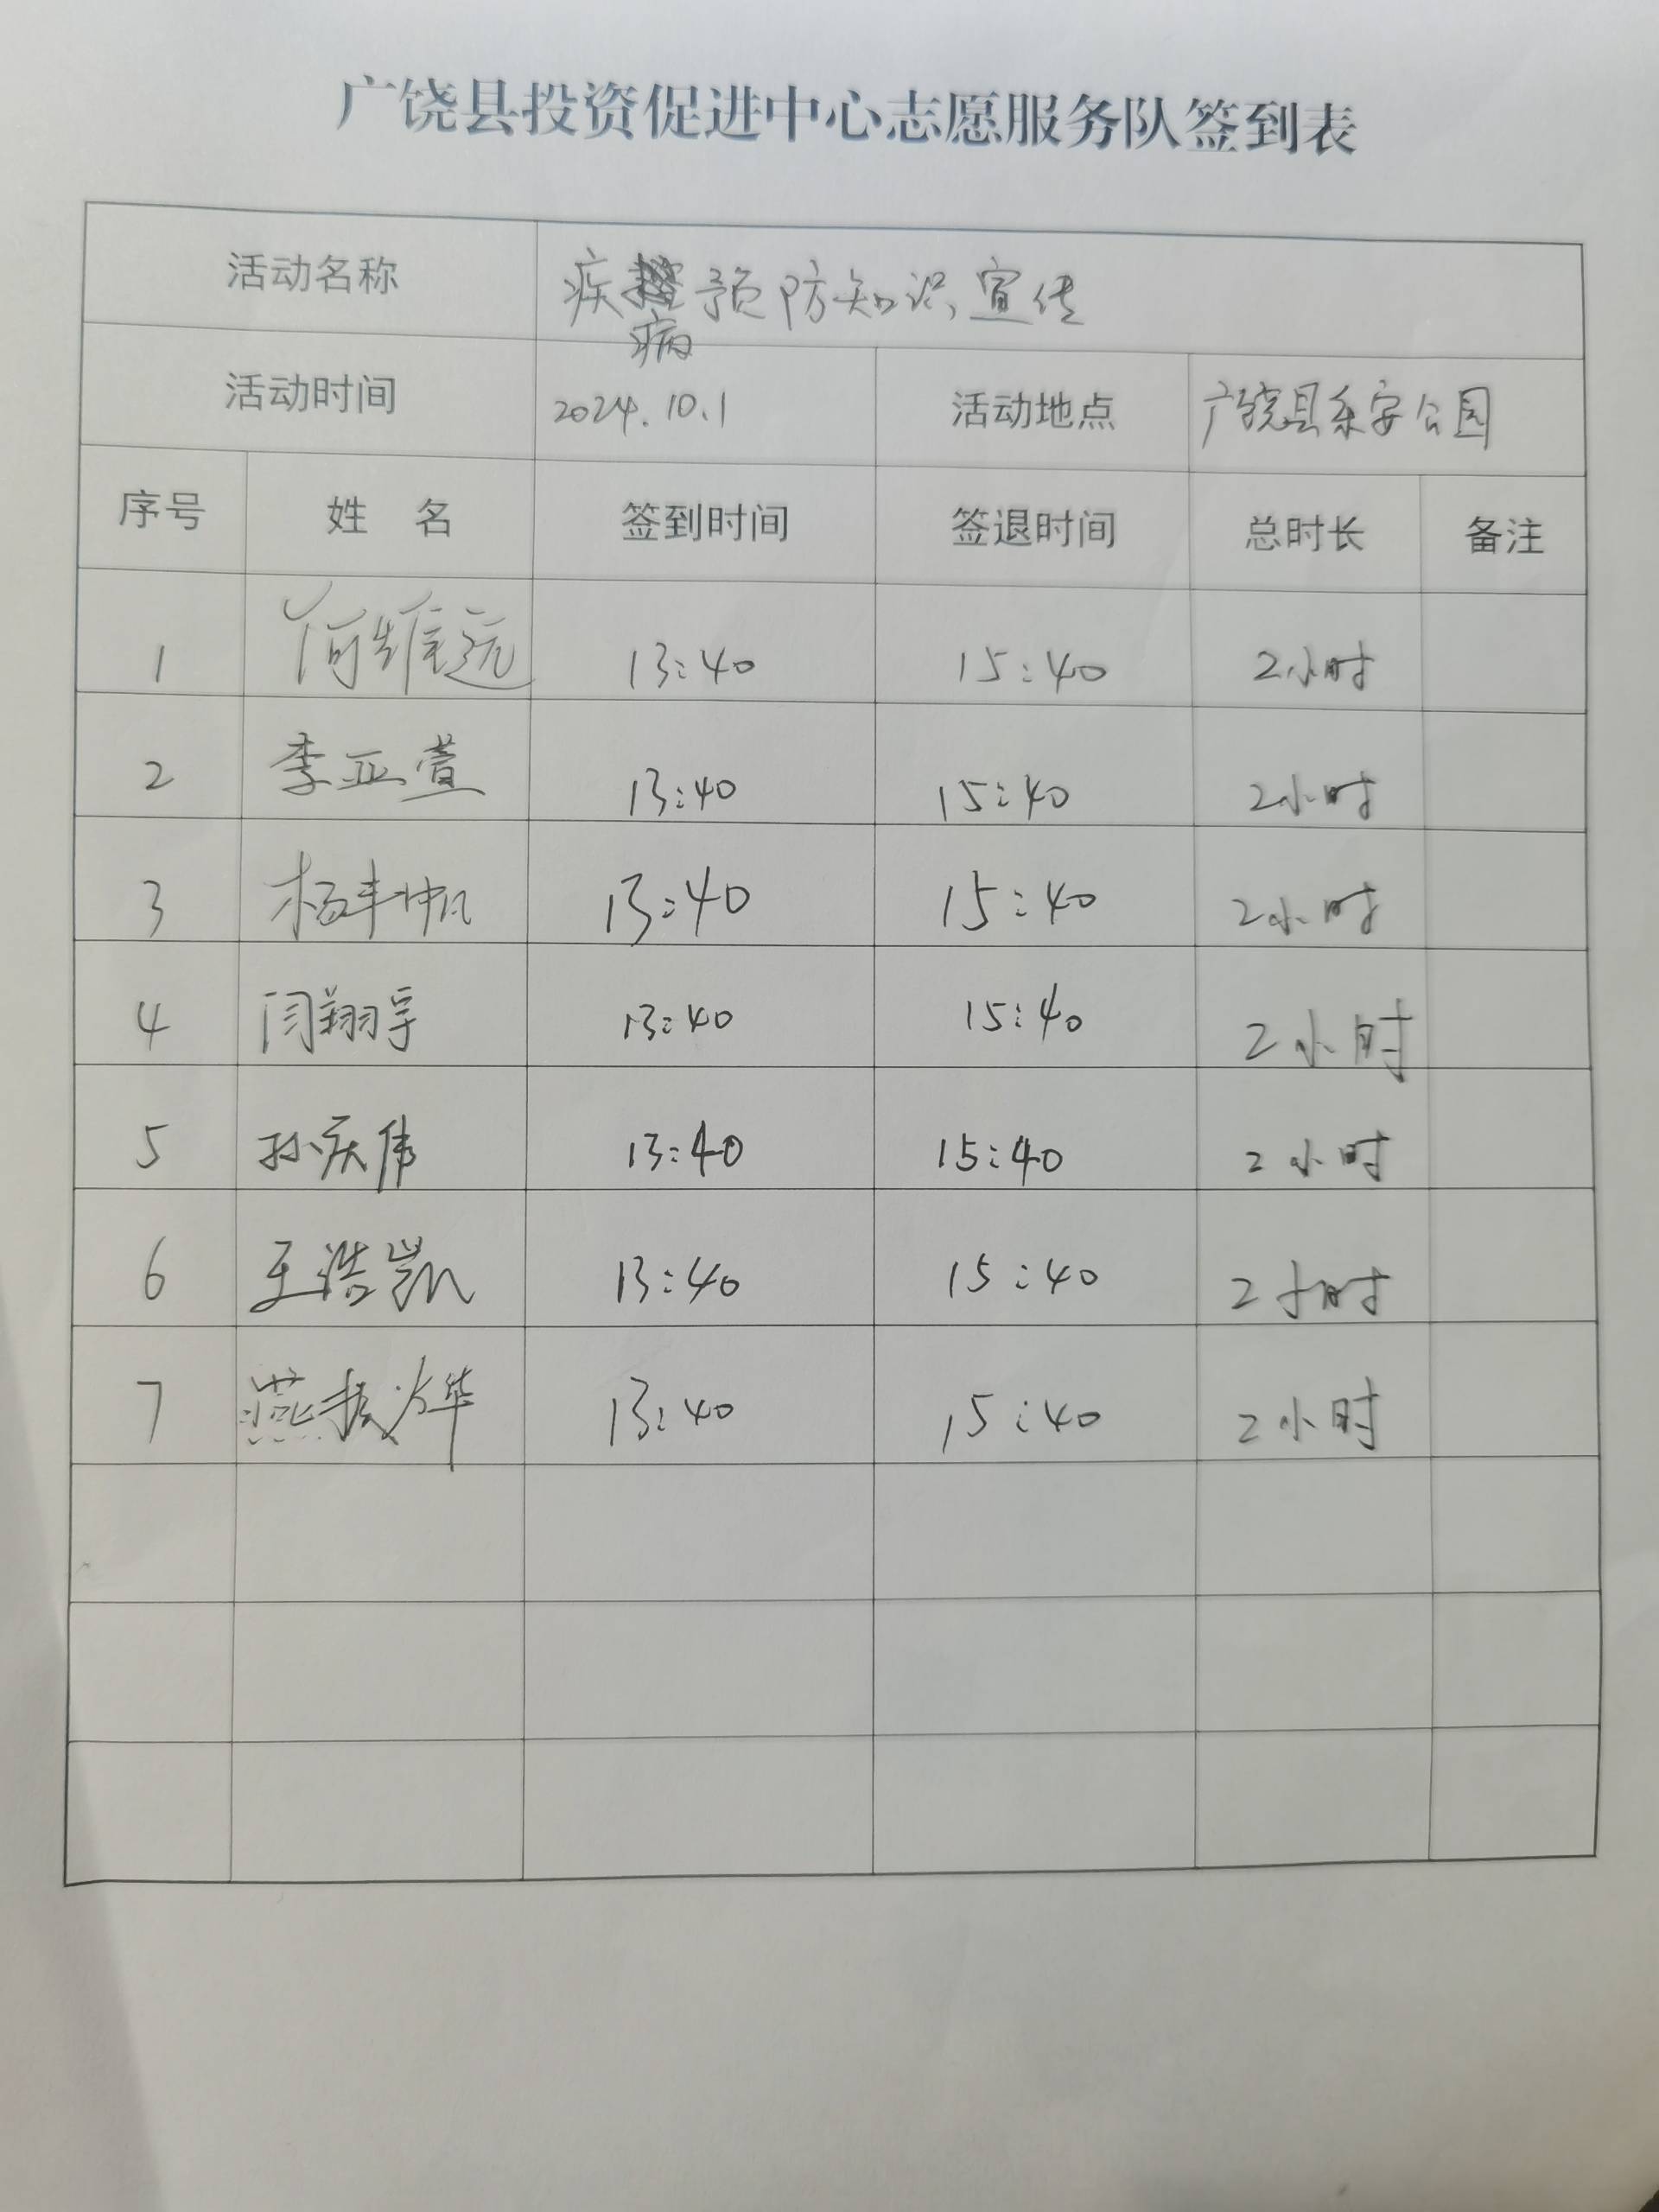 广饶县投资促进中心志愿服务队签到表
活动名称 疾病预防知识宣传
活动时间 2024.10.1 活动地点 广饶县乐安公园
序号 姓 名 签到时间 签退时间 总时长 备注
1 何维远 13:40 15:40 2小时
2 李亚萱 13:40 15:40 2小时
3 杨丰帆 13:40 15:40 2小时
4 闫翔宇 13:40 15:40 2小时
5 孙庆伟 13:40 15:40 2小时
6 王浩凯 13:40 15:40 2小时
7 燕振华 13:40 15:40 2小时